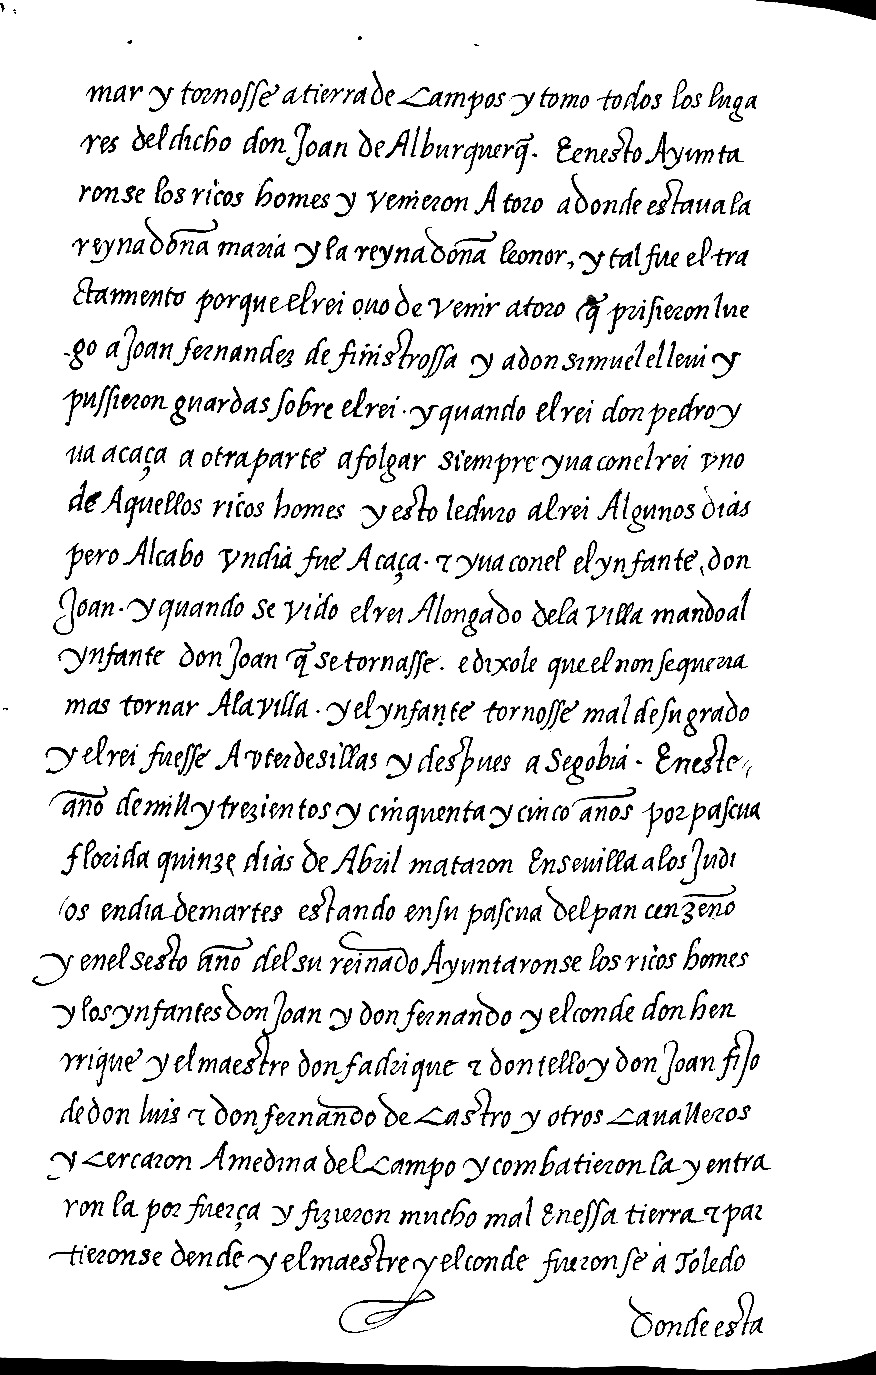 mar y tornosse a tierra de Campos y tomo todos los luga
res del dicho don Joan de Alburquerq̃. E en esto Ayunta
ronse los ricos homes y venieron A toro adonde estaua la
reyna doña maria y la reyna doña leonor, y tal fue el tra
ctamento porque el rei ouo de venir a toro q̃ prisieron lue
go a Joan fernandez de finistrossa y a don simuel el leui y
pussieron guardas sobre el rei. y quando el rei don pedro y
ua a caça a otra parte a folgar siempre yua con el rei vno
de Aquellos ricos homes y esto le duro al rei Algunos dias
pero Al cabo vn dia fue A caça. & yua con el el ynfante, don
Joan. y quando se vido el rei Alongado de la villa mando al
ynfante don Joan q̃ se tornasse. e dixole que el non se queria
mas tornar A la villa. y el ynfante tornosse mal de su grado
y el rei fuesse A vterdesillas y despues a Segobia. En este
año de mill y trezientos y cinquenta y cinco años por pascua
florida quinze dias de Abril mataron En seuilla a los Judi
os en dia de martes estando en su pascua del pan cenzeño
y en el sesto año del su reinado Ayuntaronse los ricos homes
y los ynfantes don Joan y don fernando y el conde don hen
rrique y el maestre don fadrique & don tello y don Joan fijo
de don luis & don fernando de Castro y otros Caualleros
y Cercaron A medina del Campo y combatieron la y entra
ron la por fuerça y fizieron mucho mal En essa tierra & par
tieronse dende y el maestre y el conde fueronse à Toledo
donde esta